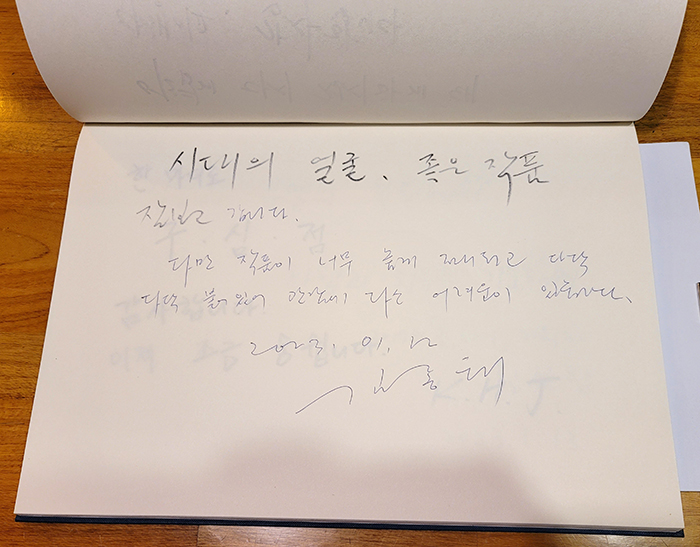 시대의 얼굴, 좋은 작품
잘보고 갑니다.
다만 작품이 너무 높게 전시되고 다닥
다닥 붙어있어 관람에 다소 어려움이 있습니다.
2023. 01. 12